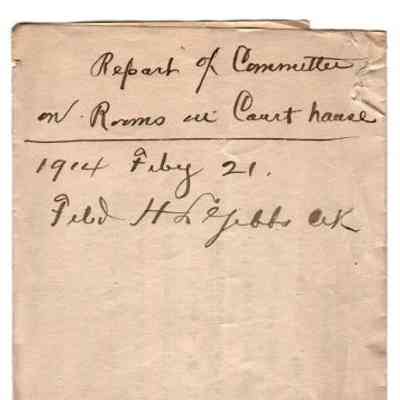 Report of Committee
on Rooms in Court house
1914 Feby 21.
Filed H L Gibbs Clk